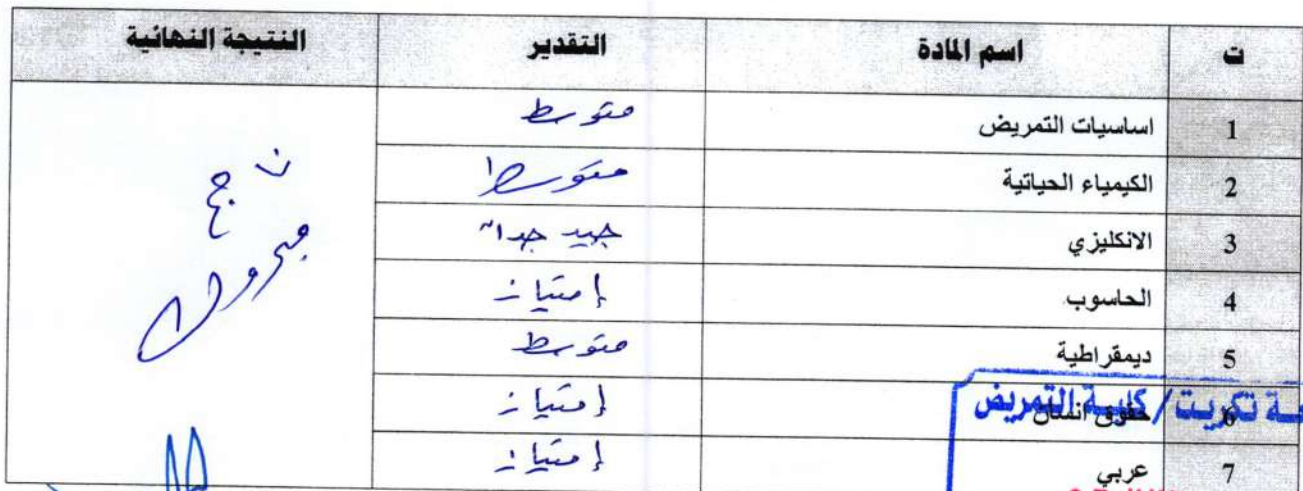 ت اسم المادة التقدير النتيجة النهائية
1 اساسيات التمريض متوسط
2 الكيمياء الحياتية متوسط
3 الانكليزي جيد جداً
4 الحاسوب إمتياز
5 ديمقراطية متوسط
6 حقوق انسان إمتياز
7 عربي إمتياز
ناجح
تكريت / كلية التمريض